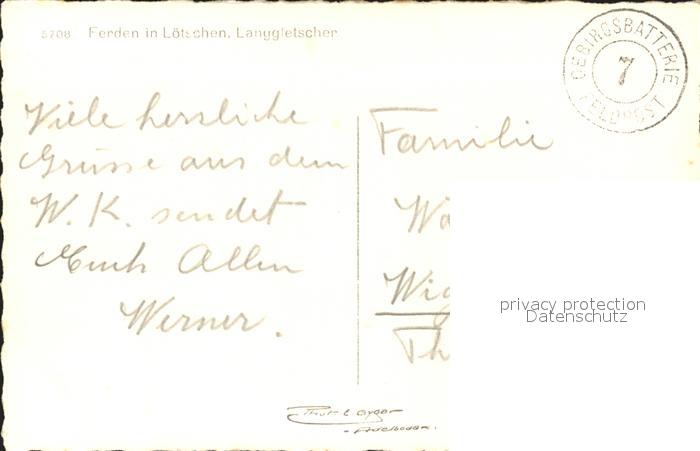 5708 Ferden in Lötschen, Langgletscher
GEBIRGSBATTERIE
7
FELDPOST
Viele herzliche
Grüsse aus dem
W. K. sendet
Euch Allen
Werner.
Familie
Wig
Th
privacy protection
Datenschutz
Phot. Gyger
Adelboden.